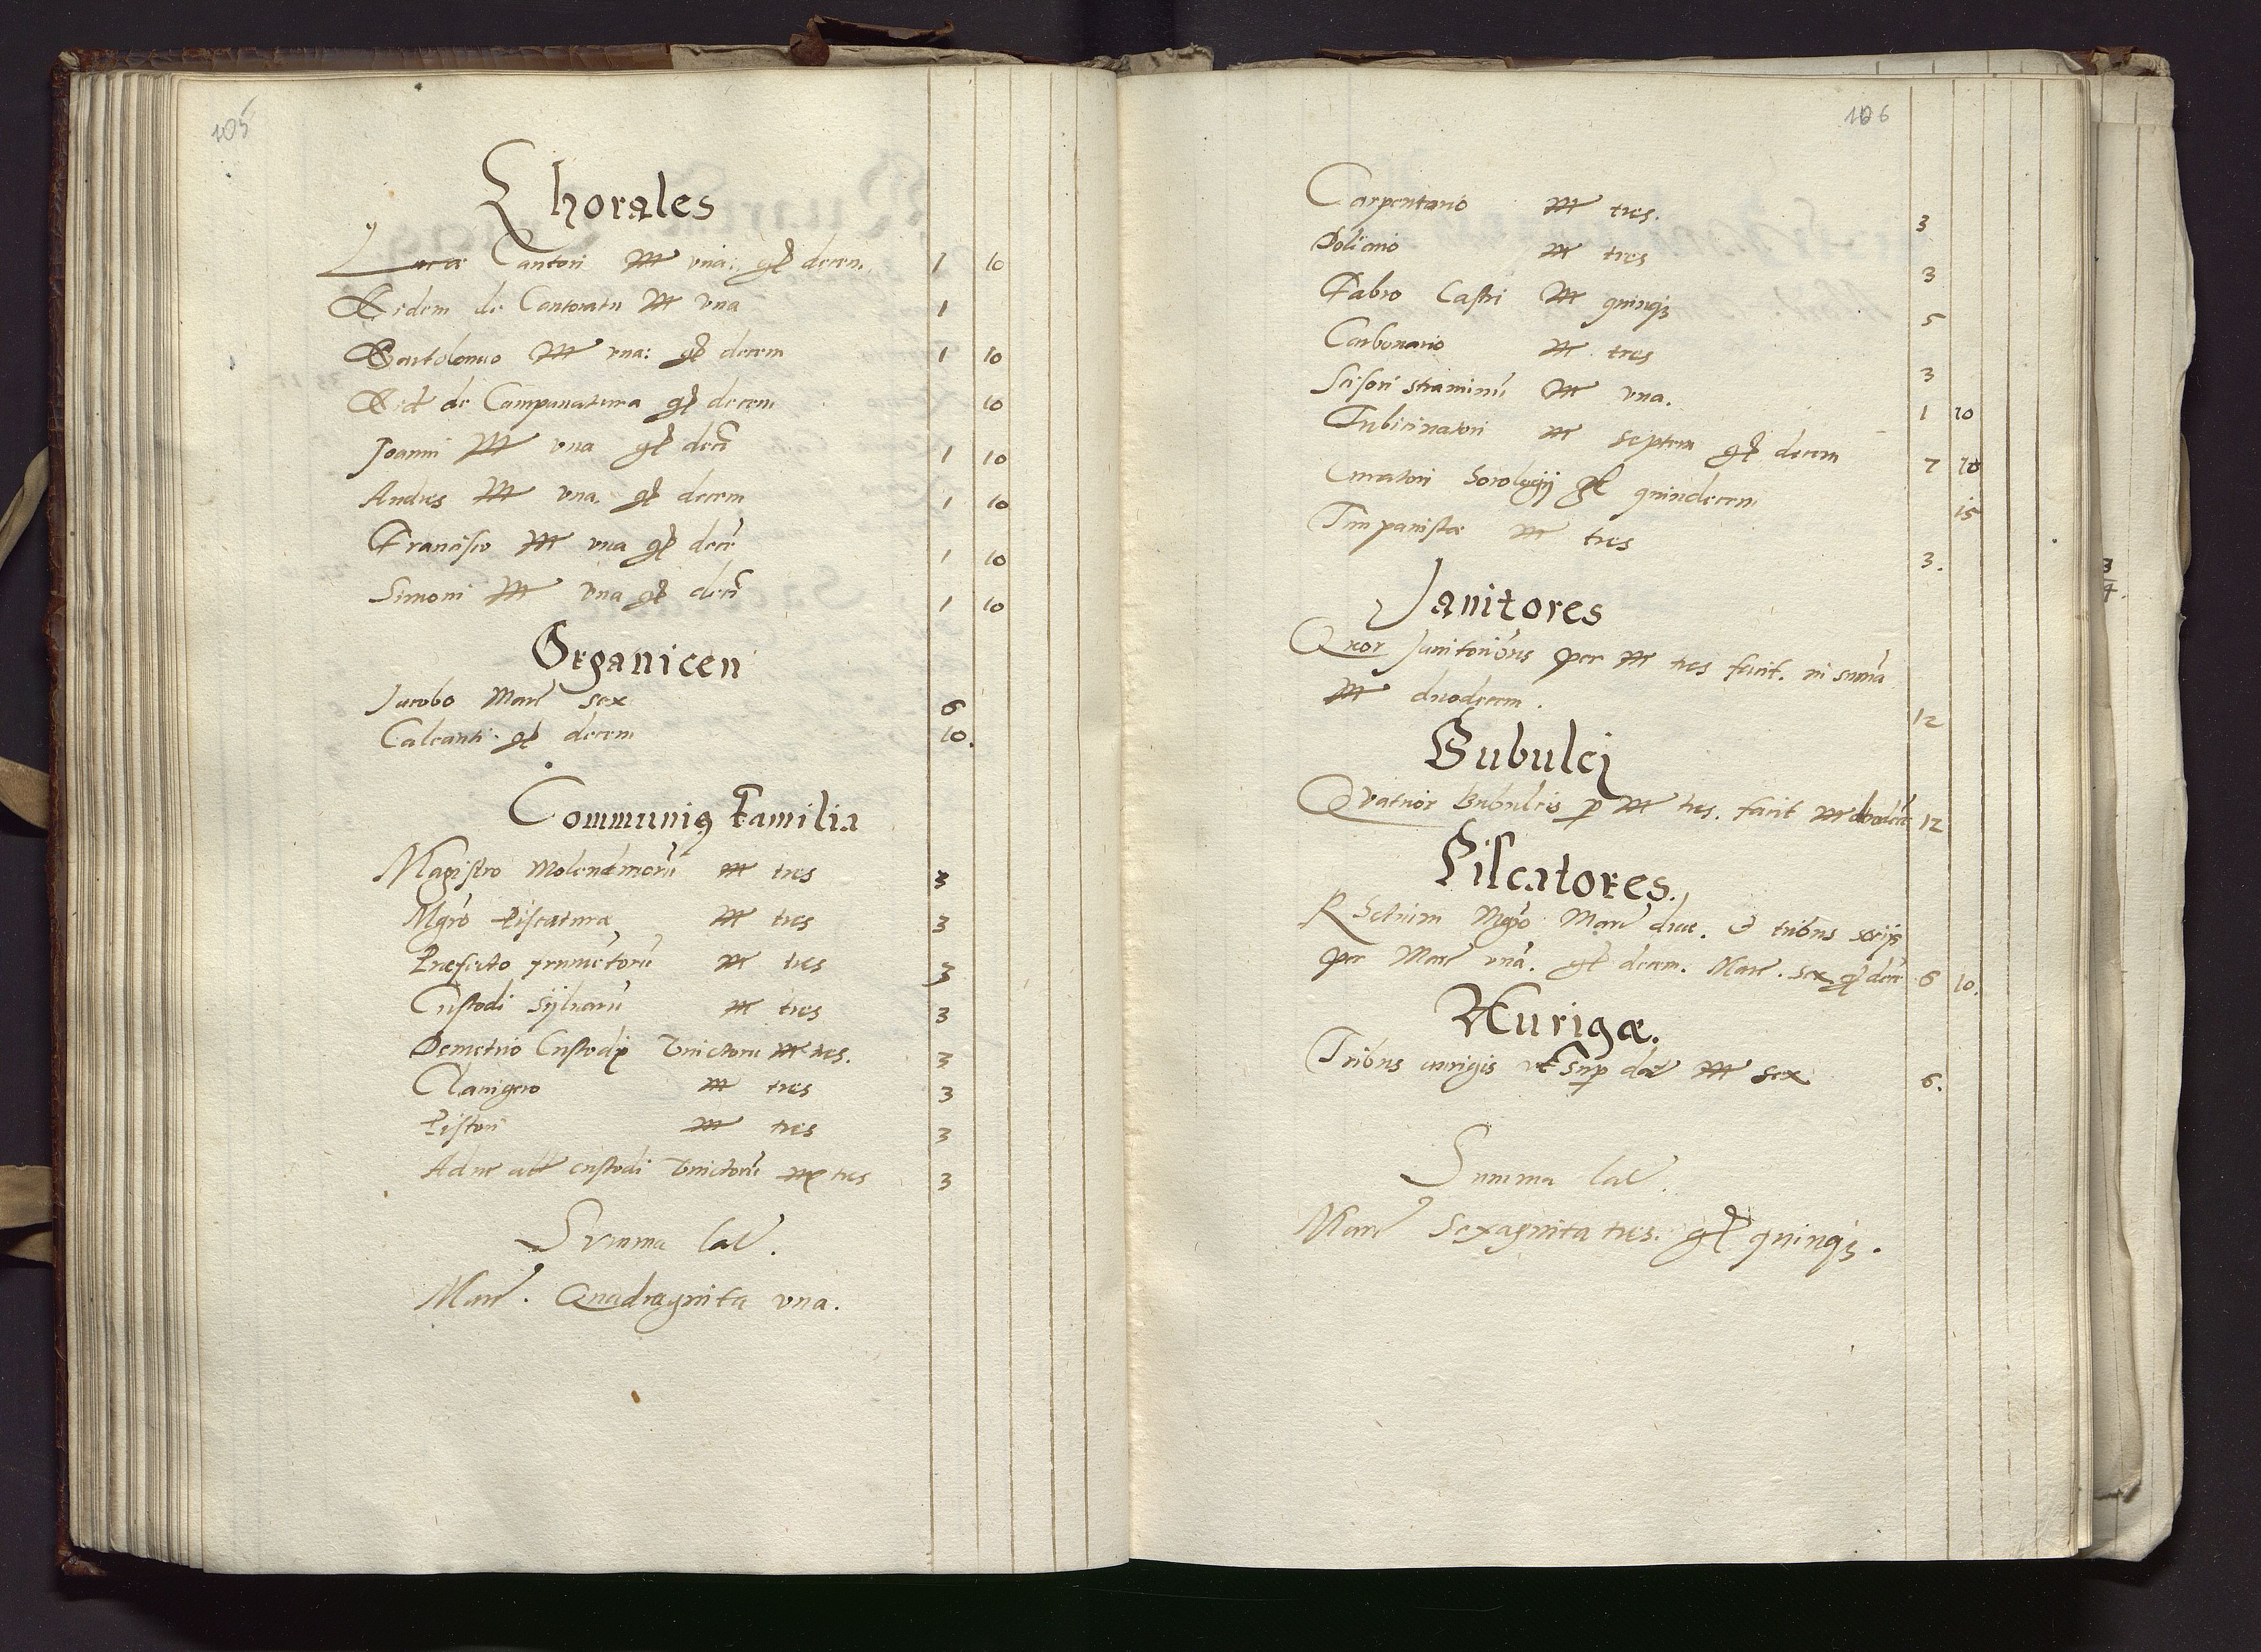 105
Chorales
Lucæ Cantori M vna: gl decem. 1 10
Eidem de Cantoratu M vna 1
Bartolomeo M vna: gl decem 1 10
Eid de Campanatura gl decem 10
Joanni M vna gl decē 1 10
Andreę M vna. gl decem 1 10
Francisco M vna gl decē 1 10
Simoni M vna gl decē 1 10
Organicen
Jacobo Marc sex 6
Calcanti gl decem 10.
Communis Familia
Magistro Molendinorū M tres 3
Mgrō Piscaturæ M tres 3
Præfecto M tres 3
Custodi Sÿluarū M tres 3
Demetrio Custodi Vinctorū M tres. 3
Clauigero M tres 3
Pistori M tres 3
Adhuc alt custodi Vinctorū M tres 3
Summa lat.
Marc. Quadraginta vna.
106
Carpentario M tres. 3
Doliario M tres 3
Fabro Castri M quinqз 5
Carbonario M tres 3
Scisori straminū M vna. 1 10
Tubicinatori M septem gl decem 7 10
Curatori horologij gl quindecem 15
Timpanistæ M tres 3.
Janitores
Qtuor Janitoribus per M tres facit. in summa
M duodecem. 12
Bubulci
Qvatuor Bubulcis p M tres. facit M duodecē 12
Piscatores.
Mgrō Marc duæ. & tribus socijs
per Marc vnā. gl decem. Marc. sex gl decē 6 10.
Aurigæ.
Tribus aurigis vt sup dat M sex 6.
Summa lat.
Marc Sexaginta tres. gl quinqз.
3
4.